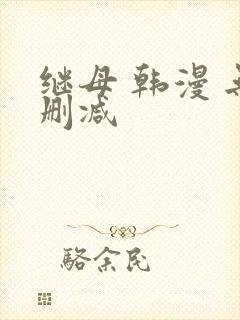 继母韩漫无
删减
駱余民